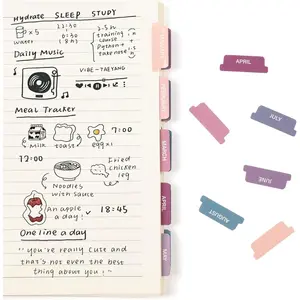 Hydrate SLEEP STUDY
x5 22:30 2.5h
water 0730 training
course +
Python +
take note
Daily Music
VIBE - TAEYANG
Meal Tracker
7:00
milk toast eggx1
12:00
Fried
chicken
leg
Noodles
with sauce
an apple
a day! 18:45
One line a day
"you're really cute and
that's not even the best
thing about you!"
MARCH
APRIL
MAY
APRIL
JULY
JUNE
AUGUST